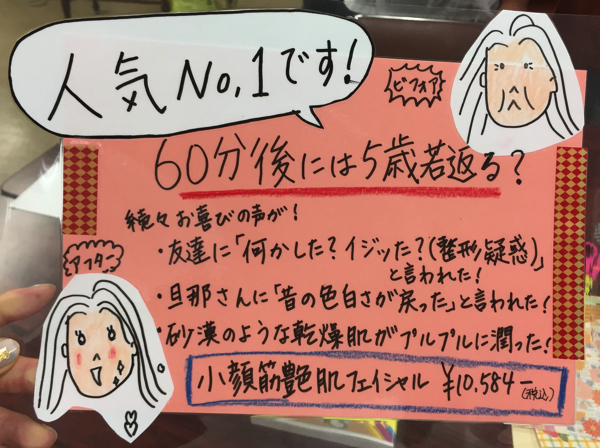 人気No,1です!
ビフォア
60分後には5歳若返る?
続々お喜びの声が!
アフター
・友達に「何かした?イジッた?(整形疑惑)」
と言われた!
・旦那さんに「昔の色白さが戻った」と言われた!
・砂漠のような乾燥肌がプルプルに潤った!
小顔筋艶肌フェイシャル ¥10,584-
(税込)